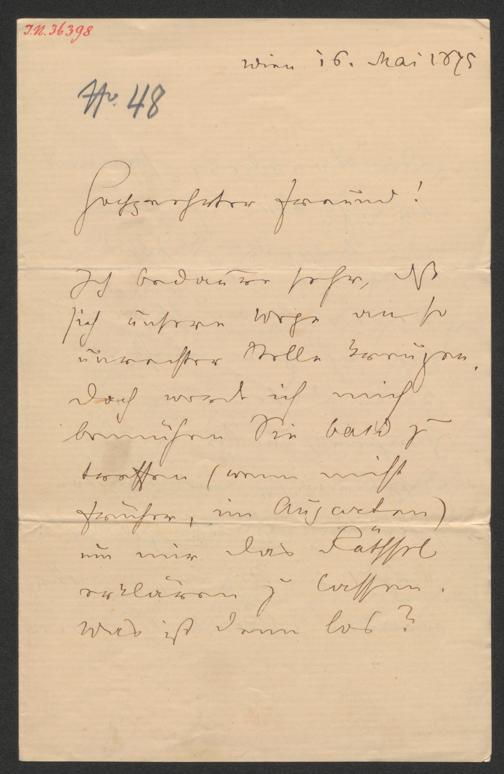 I.N. 36398
Wien 16. Mai 1875
No. 48
Hochgeehrter Freund!
Ich bedaure sehr, daß
sich unsere Wege an so
unrechter Stelle kreuzen.
Doch werde ich mich
bemühen Sie bald zu
treffen (wenn nicht
früher, im Augarten)
um mir das Räthsel
erklären zu lassen.
Was ist denn los?